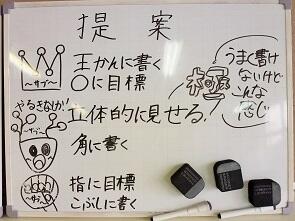 提案
〜サブ〜
王かんに書く
〇に目標
やるきなか!
立体的に見せる!
角に書く
指に目標
こぶしに書く
うまく書け
ないけど
こんな
感じ